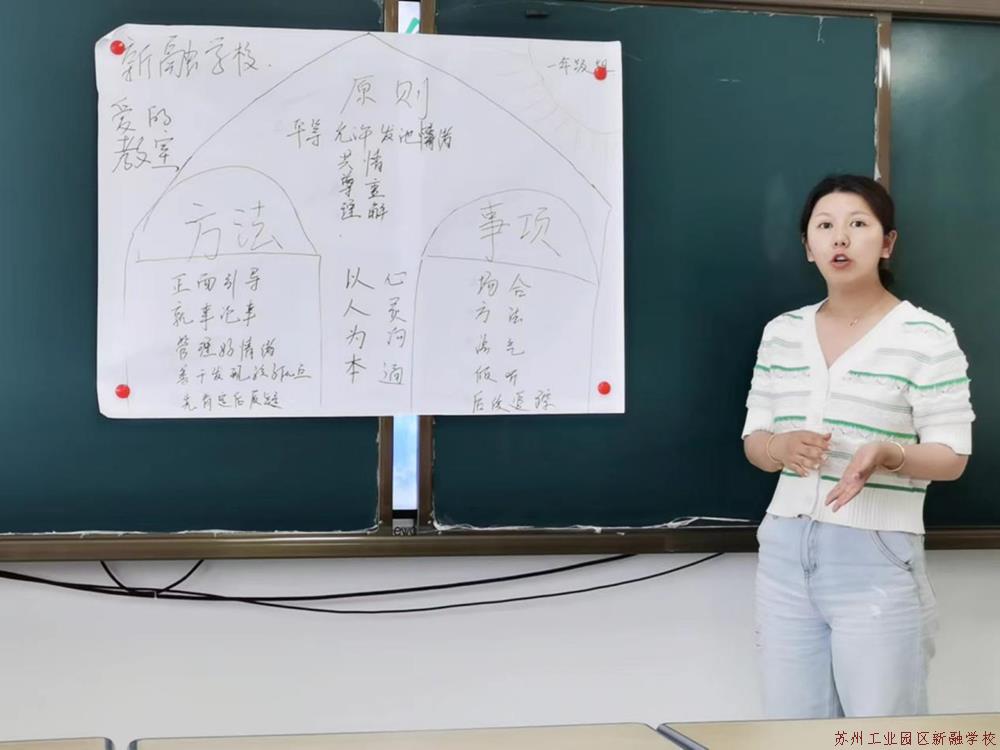 新融学校
一年级组
爱的
教室
原则
平等 允许发泄情绪
共情
尊重
理解
方法
正面引导
就事论事
管理好情绪
善于发现孩子闪光点
以人为本
心灵沟通
事项
场合
方法
语气
倾听
后续追踪
苏州工业园区新融学校